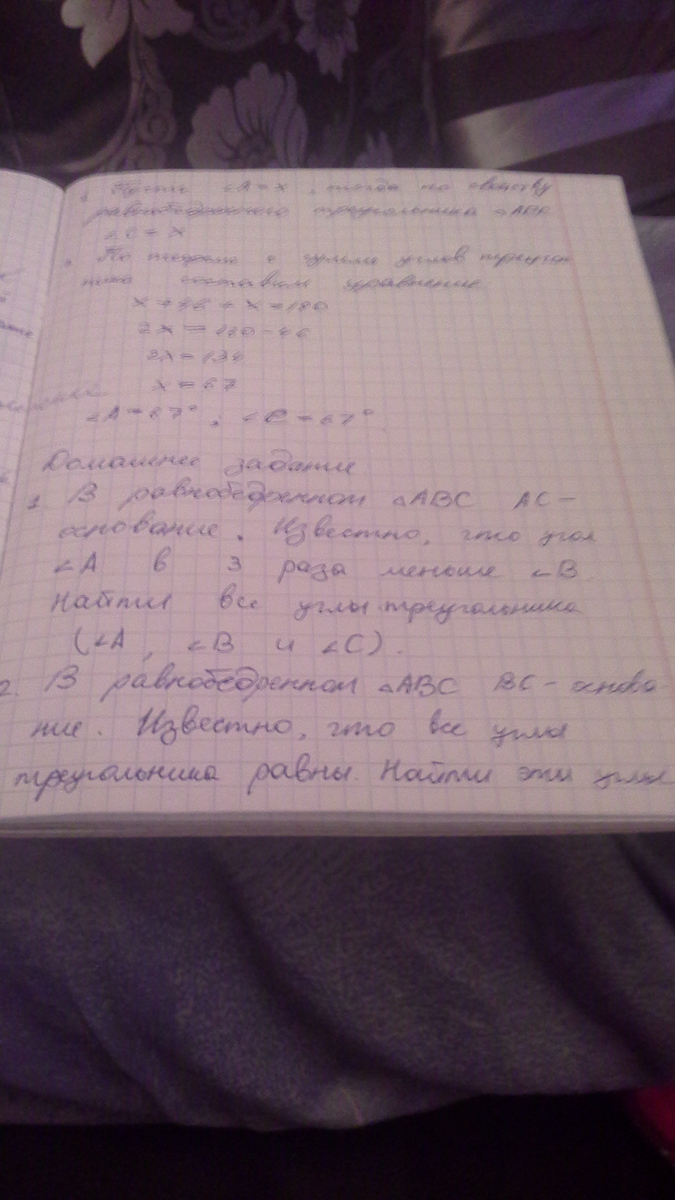 1. Пусть ∠A = x, тогда по свойству
равнобедренного треугольника △ABC
∠C = x
По теореме о сумме углов треуголь
ника составим уравнение:
x + 46 + x = 180
2x = 180 - 46
2x = 134
x = 67
∠A = 67° ; ∠C = 67°.
Домашнее задание
1. В равнобедренном △ABC AC -
основание. Известно, что угол
∠A в 3 раза меньше ∠B.
Найти все углы треугольника
(∠A, ∠B и ∠C).
2. В равнобедренном △ABC BC - основа
ние. Известно, что все углы
треугольника равны. Найти эти углы